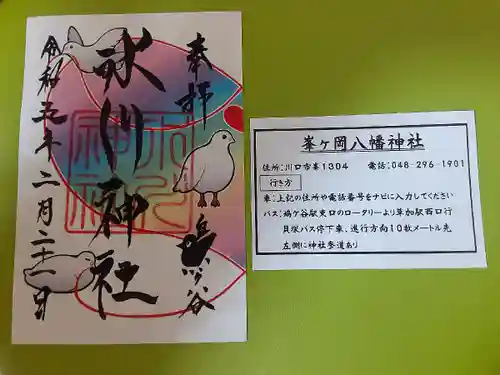 奉拝
鳩ヶ谷
氷川神社
令和五年二月二十一日
氷川神社
峯ヶ岡八幡神社
住所:川口市峯1304 電話:048-296-1901
行き方
車:上記の住所や電話番号をナビに入力してください
バス:鳩ケ谷駅東口のロータリーより草加駅西口行
貝塚バス停下車、進行方向10数メートル先
左側に神社参道あり